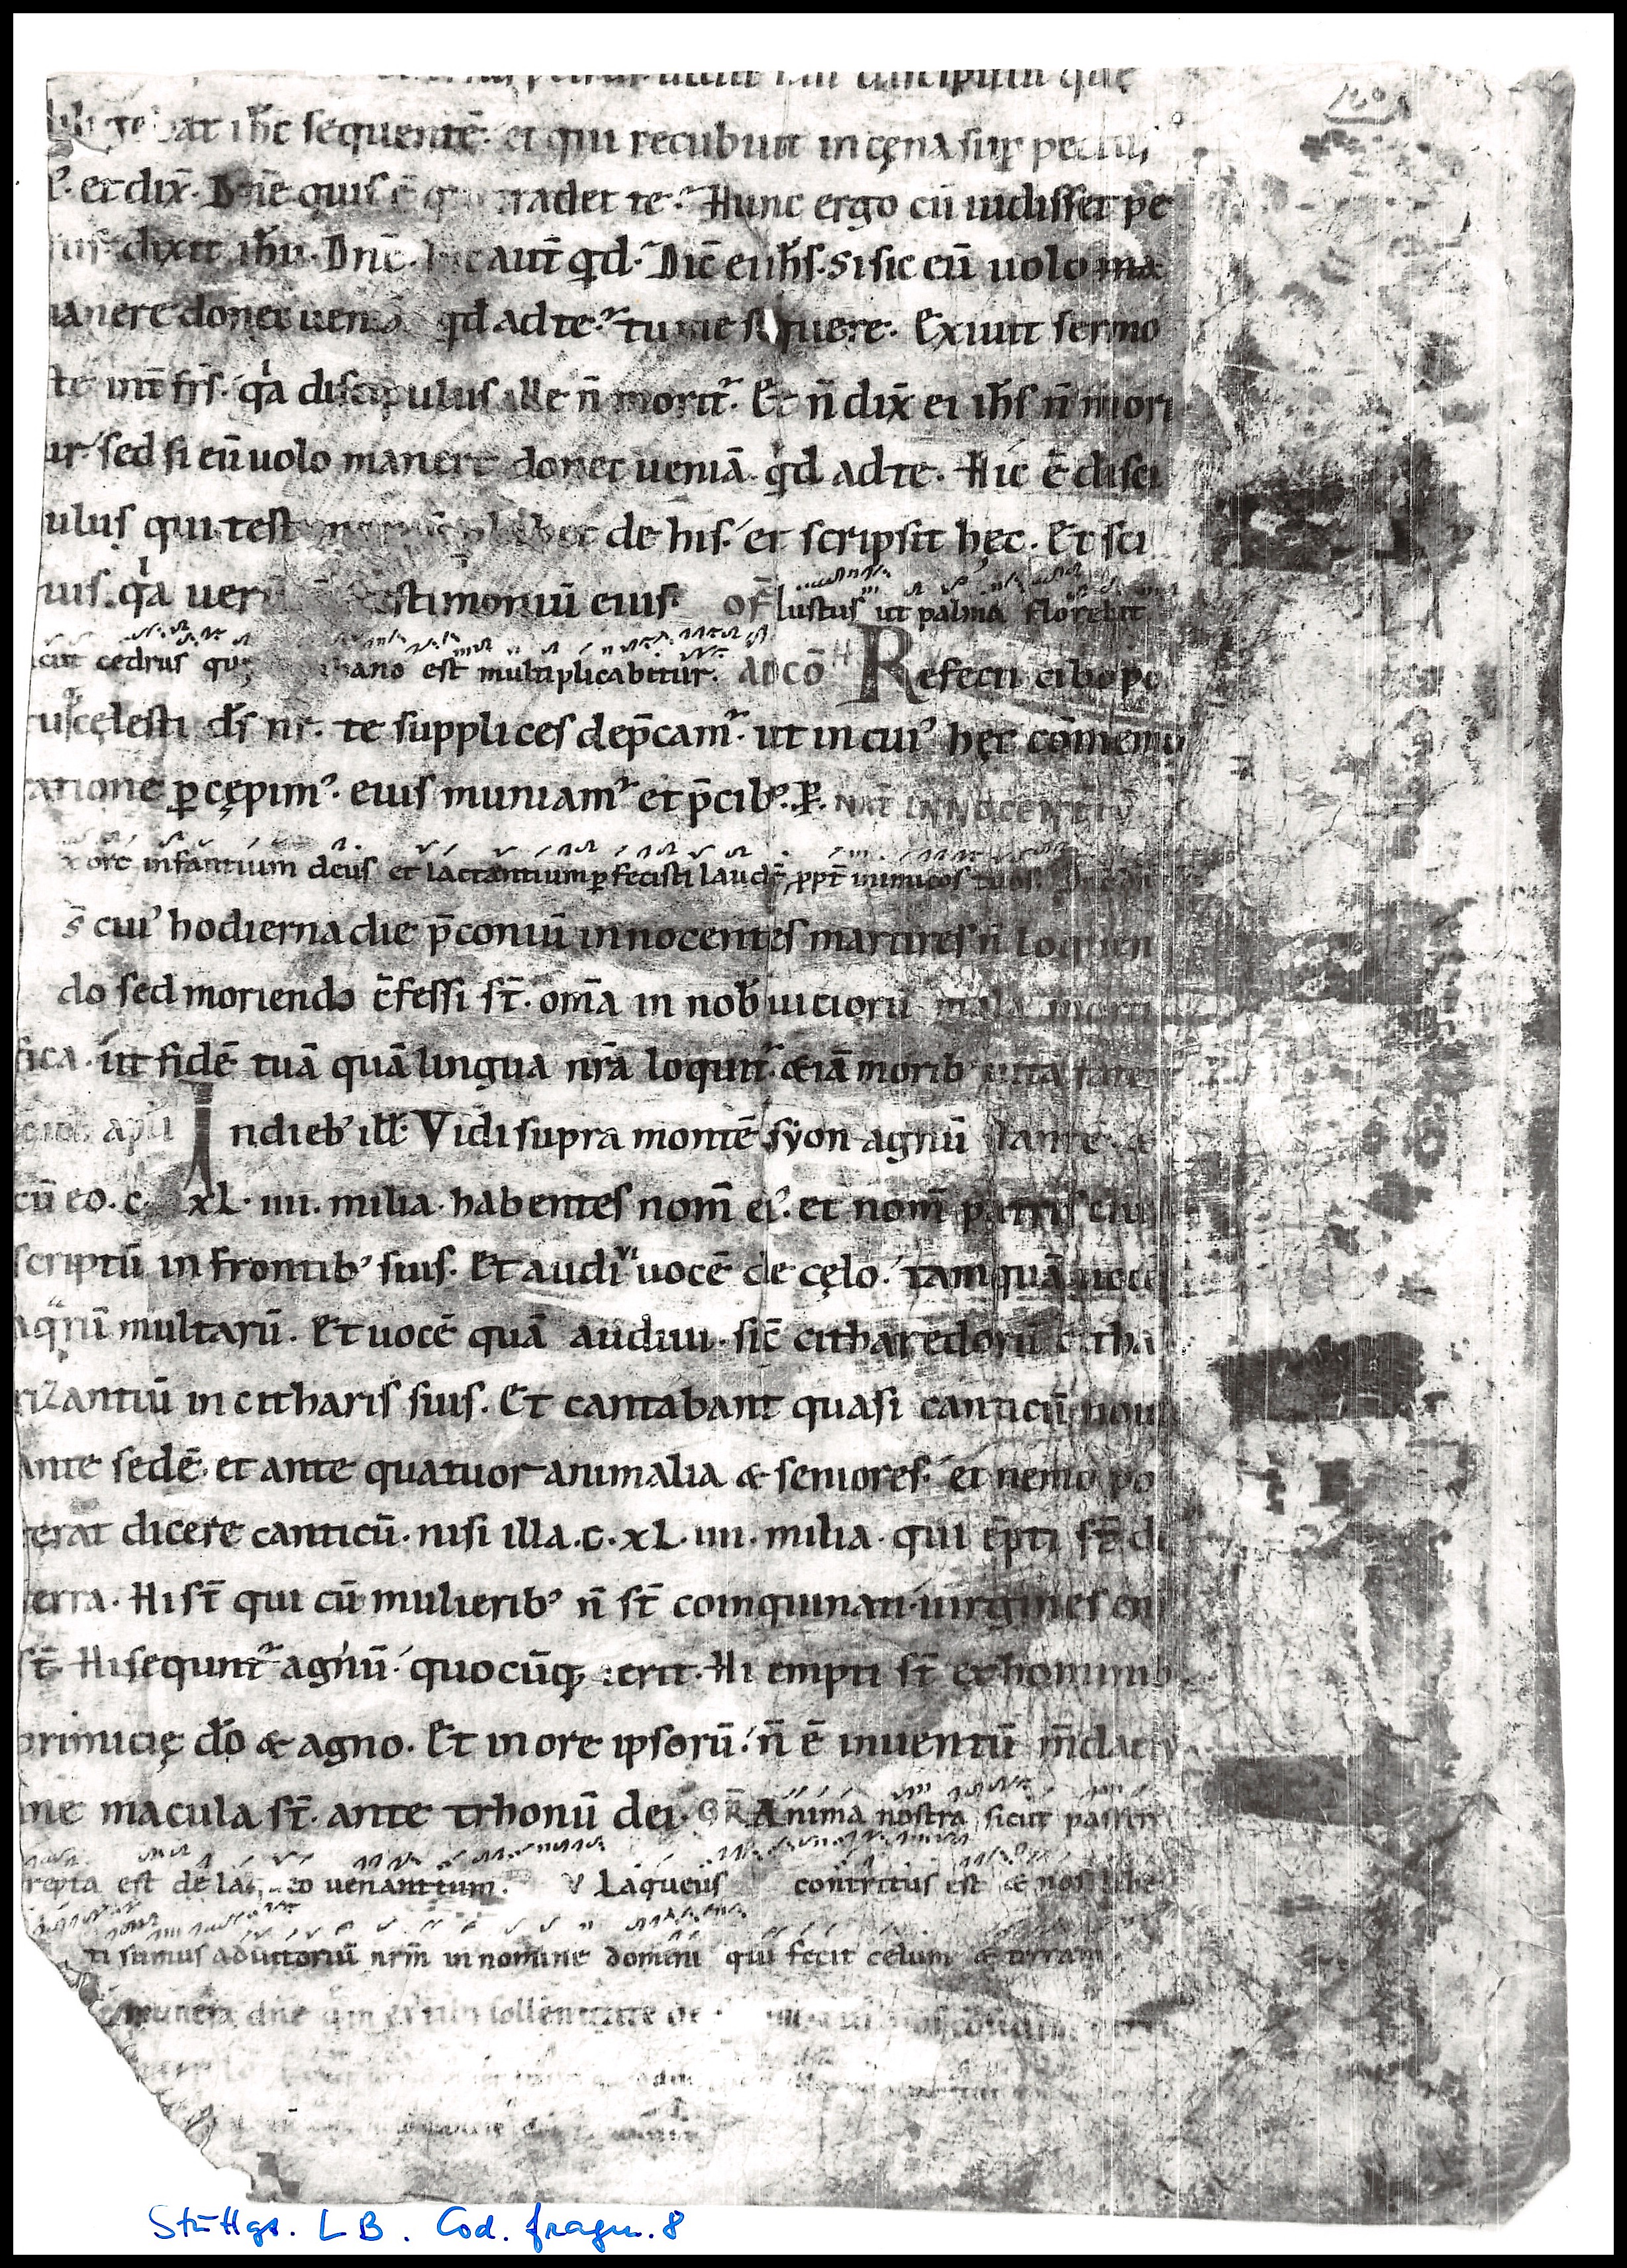 discipulū quę
at ih̄c sequentē· et qui recubuit in cęna sup̄ pectus
et dix̄· Dn̄e quis ē tradet te· Hunc ergo cū uidisset pe
dixit ih̄u· Dn̄e· aut̄ qd· Dic̄ ei ih̄s· Si sic eū uolo ma
anere donec ueniā qd ad te· tu me sequere· Exiuit sermo
te int̄ frs̄· qa discipulus ille n̄ morit᷑· Et n̄ dix̄ ei ih̄s n̄ mori
ur· sed si eū uolo manere donec ueniā· qd ad te· Hic ē disci
ulus qui test de his· et scripsit hęc· Et sci
mus· qa ueru testimoniū eius· OF̄ Iustus ut palma florebit
icut cedrus quę est multiplicabitur· AD CŌ Refecti cibo po
tuq cęlesti ds̄ nr̄· te supplices dep̄cam᷑· ut in cui᾽ hęc cōmemo
ratione p̄cępim᾽· eius muniam᷑ et p̄cib᾽· P̄· NAT̄ INNOCENTIŪ
x ore infantium deus et lactantium p̄fecisti laudē ppt̄ inimicos tuos·
s̄ cui᾽ hodierna die p̄coniū innocentes martires n̄ loquen
do sed moriendo c̄fessi st̄· om̄a in nob̄ uiciorū mala morti
fica· ut fidē tuā quā lingua nr̄a loquit᷑· & iā morib᾽ uita fate
apłi In dieb᾽ ill̄· Vidi supra montē syon agnū stantē· &
cū eo· c· xL· iiii· milia· habentes nom̄ ei᾽· et nom̄ patris eius
scriptū in frontib᾽ suis· Et audiui uocē de cęlo· tamquā uocē
aqrū multarū· Et uocē quā audiui· sic̄ citharedorū citha
rizantiū in citharis suis· Et cantabant quasi canticū nouū
ante sedē· et ante quatuor animalia & seniores· et nemo po
terat dicere canticū· nisi illa· c· xL· iiii· milia· qui ēpti st̄ de
terra· Hi st̄ qui cū mulierib᾽ n̄ st̄ coinquinati· uirgines eni
st̄· Hi sequnt᷑ agnū· quocūq; ierit· Hi empti st̄ ex hominib᾽
primicię dō & agno· Et in ore ipsorū· n̄ ē inuentū m̄daciū
ine macula st̄· ante trhonū dei· GR̄ Anima nostra sicut passer
repta est de laqueo uenantium· V Laqueus contritus est & nos libe
ti sumus adiutoriū nrm̄ in nomine domini qui fecit celum & terram·
munera dn̄e sollenitate
Stuttgt. LB. Cod. fragm. 8